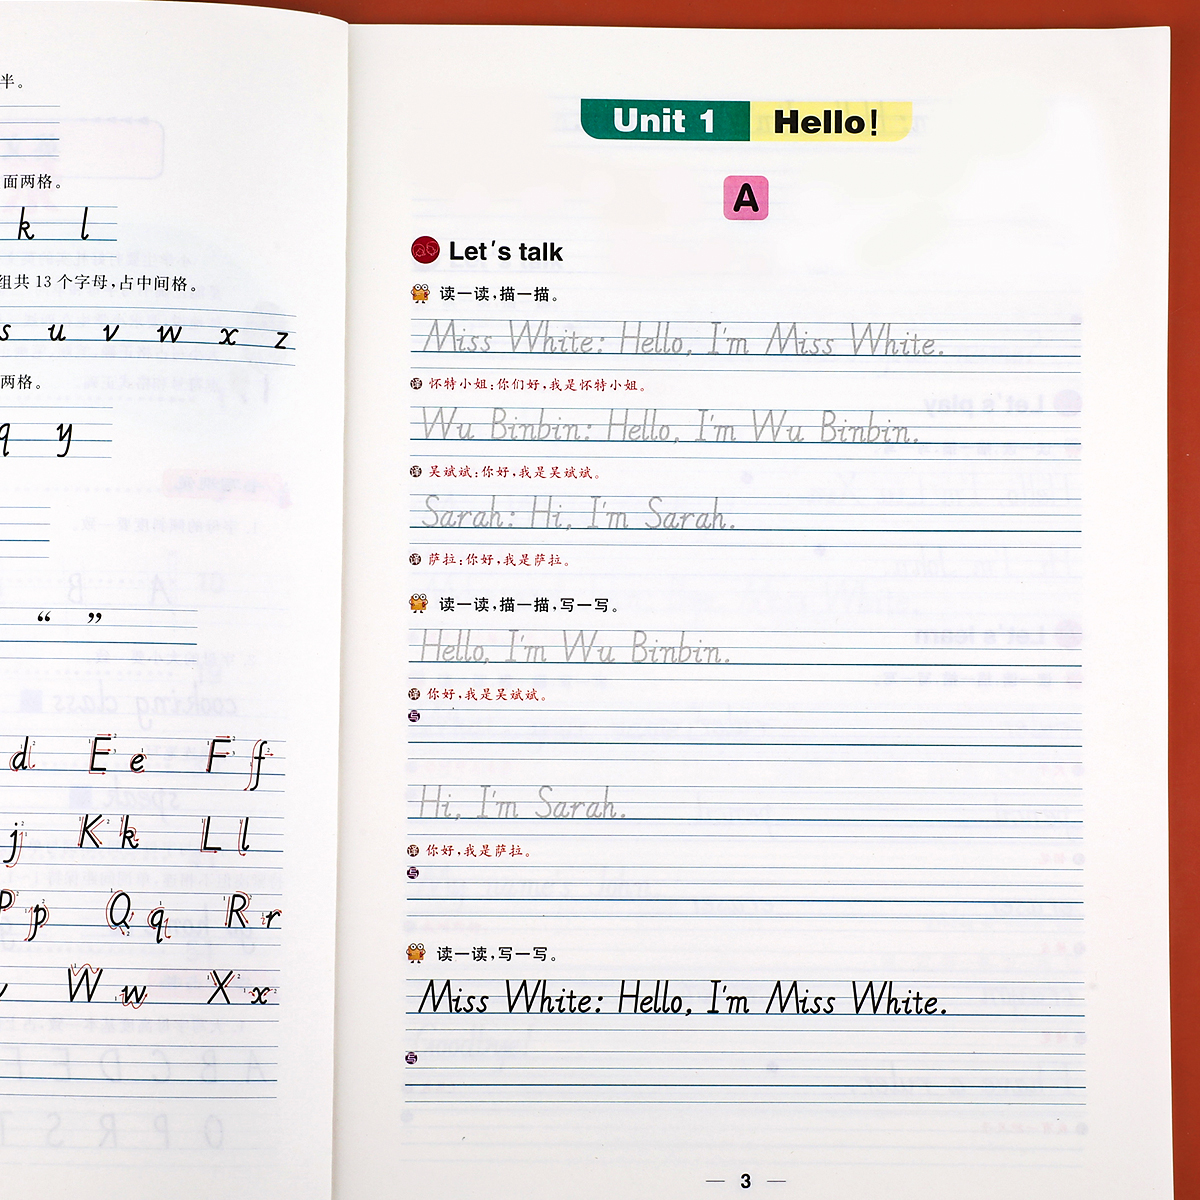 半。
面两格。
k l
组共 13 个字母,占中间格。
s u v w x z
两格。
q y
“ ”
d E e F f
j K k L l
P p Q q R r
W w X x
Unit 1 Hello!
A
Let's talk
读一读,描一描。
Miss White: Hello, I'm Miss White.
译 怀特小姐:你们好,我是怀特小姐。
Wu Binbin: Hello, I'm Wu Binbin.
译 吴斌斌:你好,我是吴斌斌。
Sarah: Hi, I'm Sarah.
译 萨拉:你好,我是萨拉。
读一读,描一描,写一写。
Hello, I'm Wu Binbin.
译 你好,我是吴斌斌。
写
Hi, I'm Sarah.
译 你好,我是萨拉。
写
读一读,写一写。
Miss White: Hello, I'm Miss White.
写
3